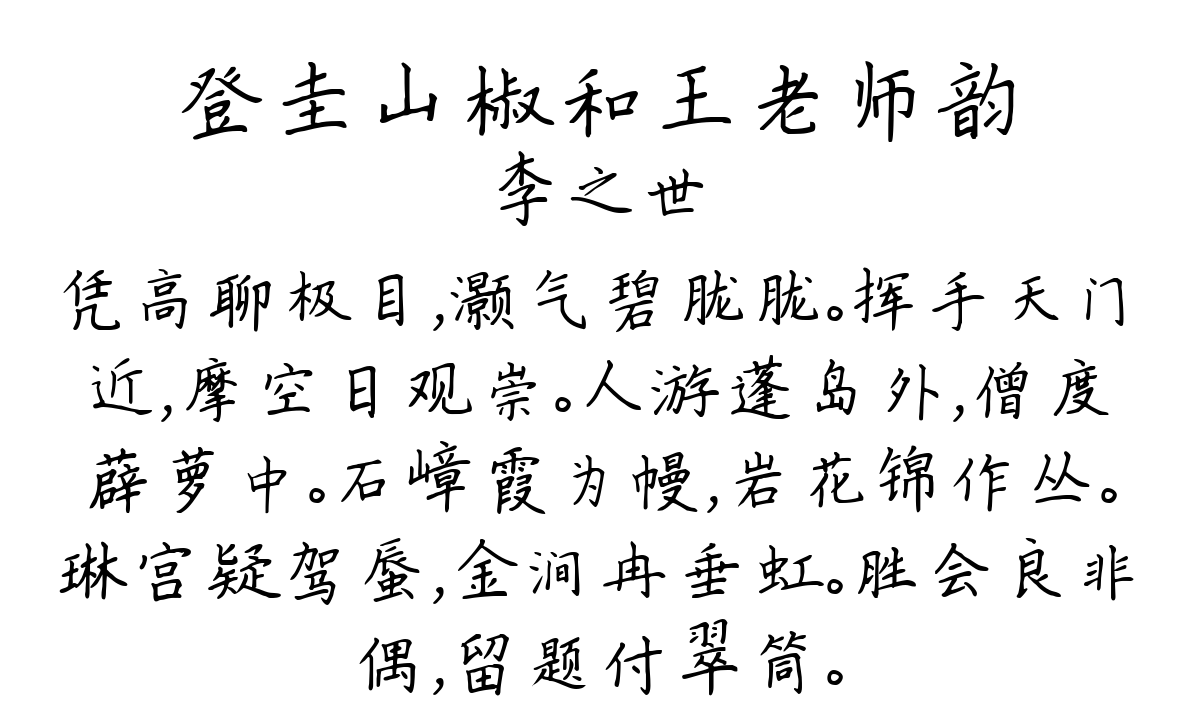 登圭山椒和王老师韵
李之世
凭高聊极目,灏气碧胧胧。挥手天门
近,摩空日观崇。人游蓬岛外,僧度
薜萝中。石嶂霞为幔,岩花锦作丛。
琳宫疑驾蜃,金涧冉垂虹。胜会良非
偶,留题付翠筒。